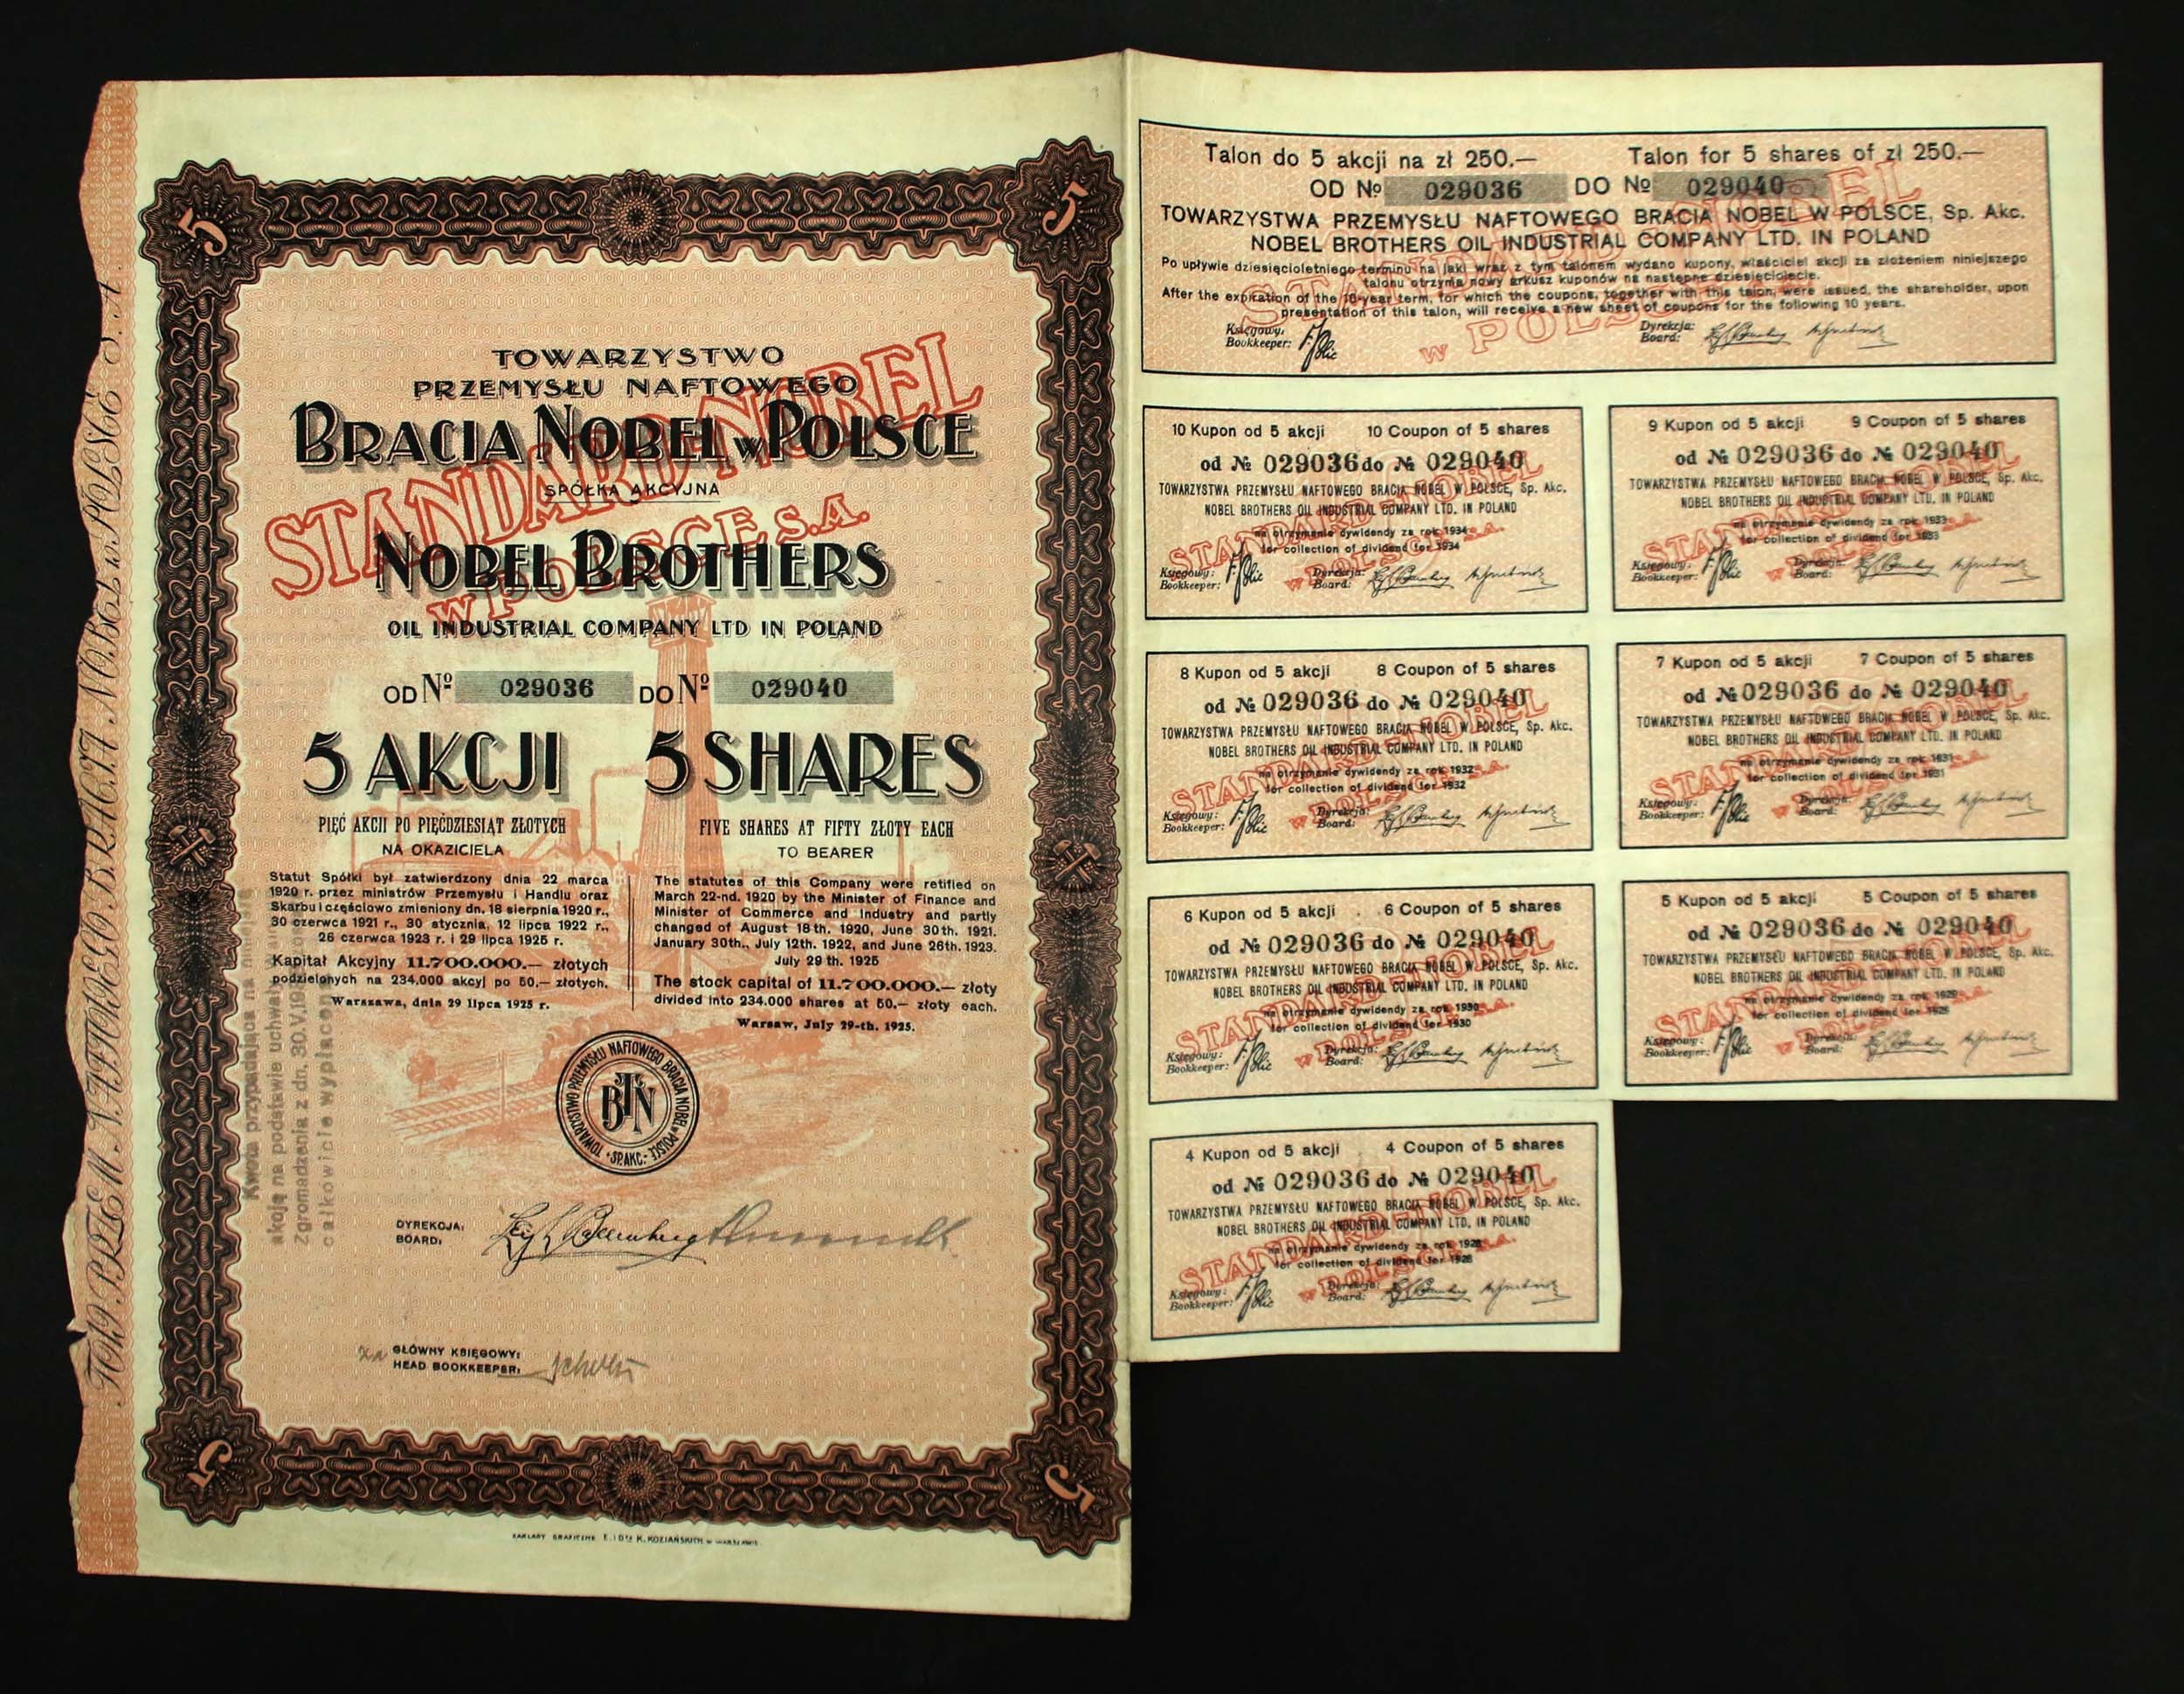 TOW. PRZEM. NAFTOWEGO BRACIA NOBEL w POLSCE S. A.
5
5
TOWARZYSTWO
PRZEMYSŁU NAFTOWEGO
BRACIA NOBEL w POLSCE
SPÓŁKA AKCYJNA
STANDARD-NOBEL
w POLSCE S.A.
NOBEL BROTHERS
OIL INDUSTRIAL COMPANY LTD IN POLAND
OD Nº 029036 DO Nº 029040
5 AKCJI
PIĘĆ AKCJI PO PIĘĆDZIESIĄT ZŁOTYCH
NA OKAZICIELA
Statut Spółki był zatwierdzony dnia 22 marca
1920 r. przez ministrów Przemysłu i Handlu oraz
Skarbu i częściowo zmieniony dn. 18 sierpnia 1920 r.,
30 czerwca 1921 r., 30 stycznia, 12 lipca 1922 r.,
26 czerwca 1923 r. i 29 lipca 1925 r.
Kapitał Akcyjny 11.700.000.— złotych
podzielonych na 234.000 akcyj po 50.— złotych.
Warszawa, dnia 29 lipca 1925 r.
5 SHARES
FIVE SHARES AT FIFTY ZŁOTY EACH
TO BEARER
The statutes of this Company were retified on
March 22-nd. 1920 by the Minister of Finance and
Minister of Commerce and Industry and partly
changed of August 18th. 1920, June 30th. 1921.
January 30th., July 12th. 1922, and June 26th. 1923.
July 29 th. 1925
The stock capital of 11.700.000.— złoty
divided into 234.000 shares at 50.— złoty each.
Warsaw, July 29-th. 1925.
Kwota przypadająca na
akcję na podstawie uchwały
Zgromadzenia z dn. 30.V.19
całkowicie wypłacon
TOWARZYSTWO PRZEMYSŁU NAFTOWEGO BRACIA NOBEL w POLSCE
SP. AKC.
DYREKCJA:
BOARD:
za GŁÓWNY KSIĘGOWY:
HEAD BOOKKEEPER:
5
5
ZAKŁADY GRAFICZNE E. i Dra K. KOZIAŃSKICH w WARSZAWIE
Talon do 5 akcji na zł 250.— Talon for 5 shares of zł 250.—
OD Nº 029036 DO Nº 029040
TOWARZYSTWA PRZEMYSŁU NAFTOWEGO BRACIA NOBEL W POLSCE, Sp. Akc.
NOBEL BROTHERS OIL INDUSTRIAL COMPANY LTD. IN POLAND
Po upływie dziesięcioletniego terminu na jaki wraz z tym talonem wydano kupony, właściciel akcji za złożeniem niniejszego
talonu otrzyma nowy arkusz kuponów na następne dziesięciolecie.
After the expiration of the 10-year term, for which the coupons, together with this talon, were issued, the shareholder, upon
presentation of this talon, will receive a new sheet of coupons for the following 10 years.
Księgowy:
Bookkeeper:
Dyrekcja:
Board:
STANDARD NOBEL
w POLSCE
10 Kupon od 5 akcji 10 Coupon of 5 shares
od № 029036 do № 029040
TOWARZYSTWA PRZEMYSŁU NAFTOWEGO BRACIA NOBEL W POLSCE, Sp. Akc.
NOBEL BROTHERS OIL INDUSTRIAL COMPANY LTD. IN POLAND
na otrzymanie dywidendy za rok 1934
for collection of dividend for 1934
Księgowy:
Bookkeeper:
Dyrekcja:
Board:
STANDARD-NOBEL
w POLSCE S.A.
9 Kupon od 5 akcji 9 Coupon of 5 shares
od № 029036 do № 029040
TOWARZYSTWA PRZEMYSŁU NAFTOWEGO BRACIA NOBEL W POLSCE, Sp. Akc.
NOBEL BROTHERS OIL INDUSTRIAL COMPANY LTD. IN POLAND
na otrzymanie dywidendy za rok 1933
for collection of dividend for 1933
Księgowy:
Bookkeeper:
Dyrekcja:
Board:
STANDARD-NOBEL
w POLSCE S.A.
8 Kupon od 5 akcji 8 Coupon of 5 shares
od № 029036 do № 029040
TOWARZYSTWA PRZEMYSŁU NAFTOWEGO BRACIA NOBEL W POLSCE, Sp. Akc.
NOBEL BROTHERS OIL INDUSTRIAL COMPANY LTD. IN POLAND
na otrzymanie dywidendy za rok 1932
for collection of dividend for 1932
Księgowy:
Bookkeeper:
Dyrekcja:
Board:
STANDARD-NOBEL
w POLSCE S.A.
7 Kupon od 5 akcji 7 Coupon of 5 shares
od № 029036 do № 029040
TOWARZYSTWA PRZEMYSŁU NAFTOWEGO BRACIA NOBEL W POLSCE, Sp. Akc.
NOBEL BROTHERS OIL INDUSTRIAL COMPANY LTD. IN POLAND
na otrzymanie dywidendy za rok 1931
for collection of dividend for 1931
Księgowy:
Bookkeeper:
Dyrekcja:
Board:
STANDARD-NOBEL
w POLSCE S.A.
6 Kupon od 5 akcji 6 Coupon of 5 shares
od № 029036 do № 029040
TOWARZYSTWA PRZEMYSŁU NAFTOWEGO BRACIA NOBEL W POLSCE, Sp. Akc.
NOBEL BROTHERS OIL INDUSTRIAL COMPANY LTD. IN POLAND
na otrzymanie dywidendy za rok 1930
for collection of dividend for 1930
Księgowy:
Bookkeeper:
Dyrekcja:
Board:
STANDARD-NOBEL
w POLSCE S.A.
5 Kupon od 5 akcji 5 Coupon of 5 shares
od № 029036 do № 029040
TOWARZYSTWA PRZEMYSŁU NAFTOWEGO BRACIA NOBEL W POLSCE, Sp. Akc.
NOBEL BROTHERS OIL INDUSTRIAL COMPANY LTD. IN POLAND
na otrzymanie dywidendy za rok 1929
for collection of dividend for 1929
Księgowy:
Bookkeeper:
Dyrekcja:
Board:
STANDARD-NOBEL
w POLSCE S.A.
4 Kupon od 5 akcji 4 Coupon of 5 shares
od № 029036 do № 029040
TOWARZYSTWA PRZEMYSŁU NAFTOWEGO BRACIA NOBEL W POLSCE, Sp. Akc.
NOBEL BROTHERS OIL INDUSTRIAL COMPANY LTD. IN POLAND
na otrzymanie dywidendy za rok 1928
for collection of dividend for 1928
Księgowy:
Bookkeeper:
Dyrekcja:
Board:
STANDARD-NOBEL
w POLSCE S.A.